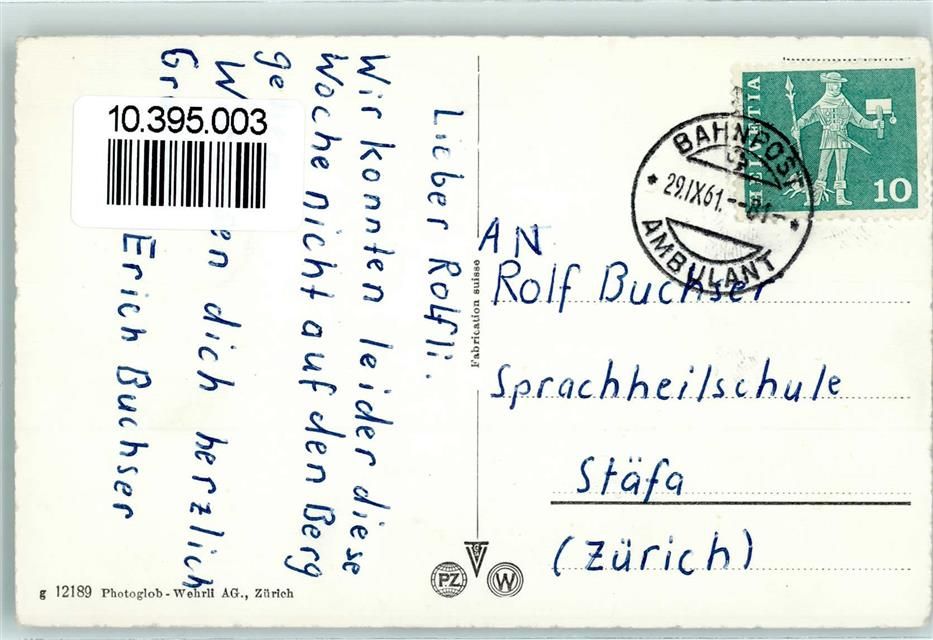 10.395.003
Lieber Rolfli.
Wir konnten leider diese
Woche nicht auf den Berg
ge
W en dich herzlich
Gr
Erich Buchser
Fabrication suisse
HELVETIA
10
BAHNPOST
29.IX.61.--81-
AMBULANT
AN
Rolf Buchser
Sprachheilschule
Stäfa
(Zürich)
PZ
W
g 12189 Photoglob-Wehrli AG., Zürich